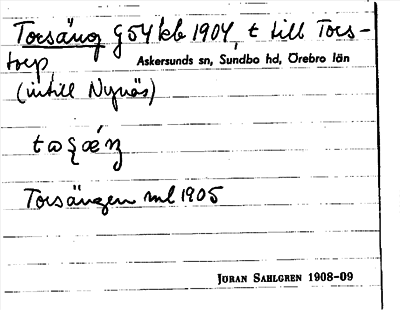 Torsäng G54 kb 1904, t till Tors-
torp
Askersunds sn, Sundbo hd, Örebro län
(intill Nynäs)
Torsängen ml 1905
JÖRAN SAHLGREN 1908-09